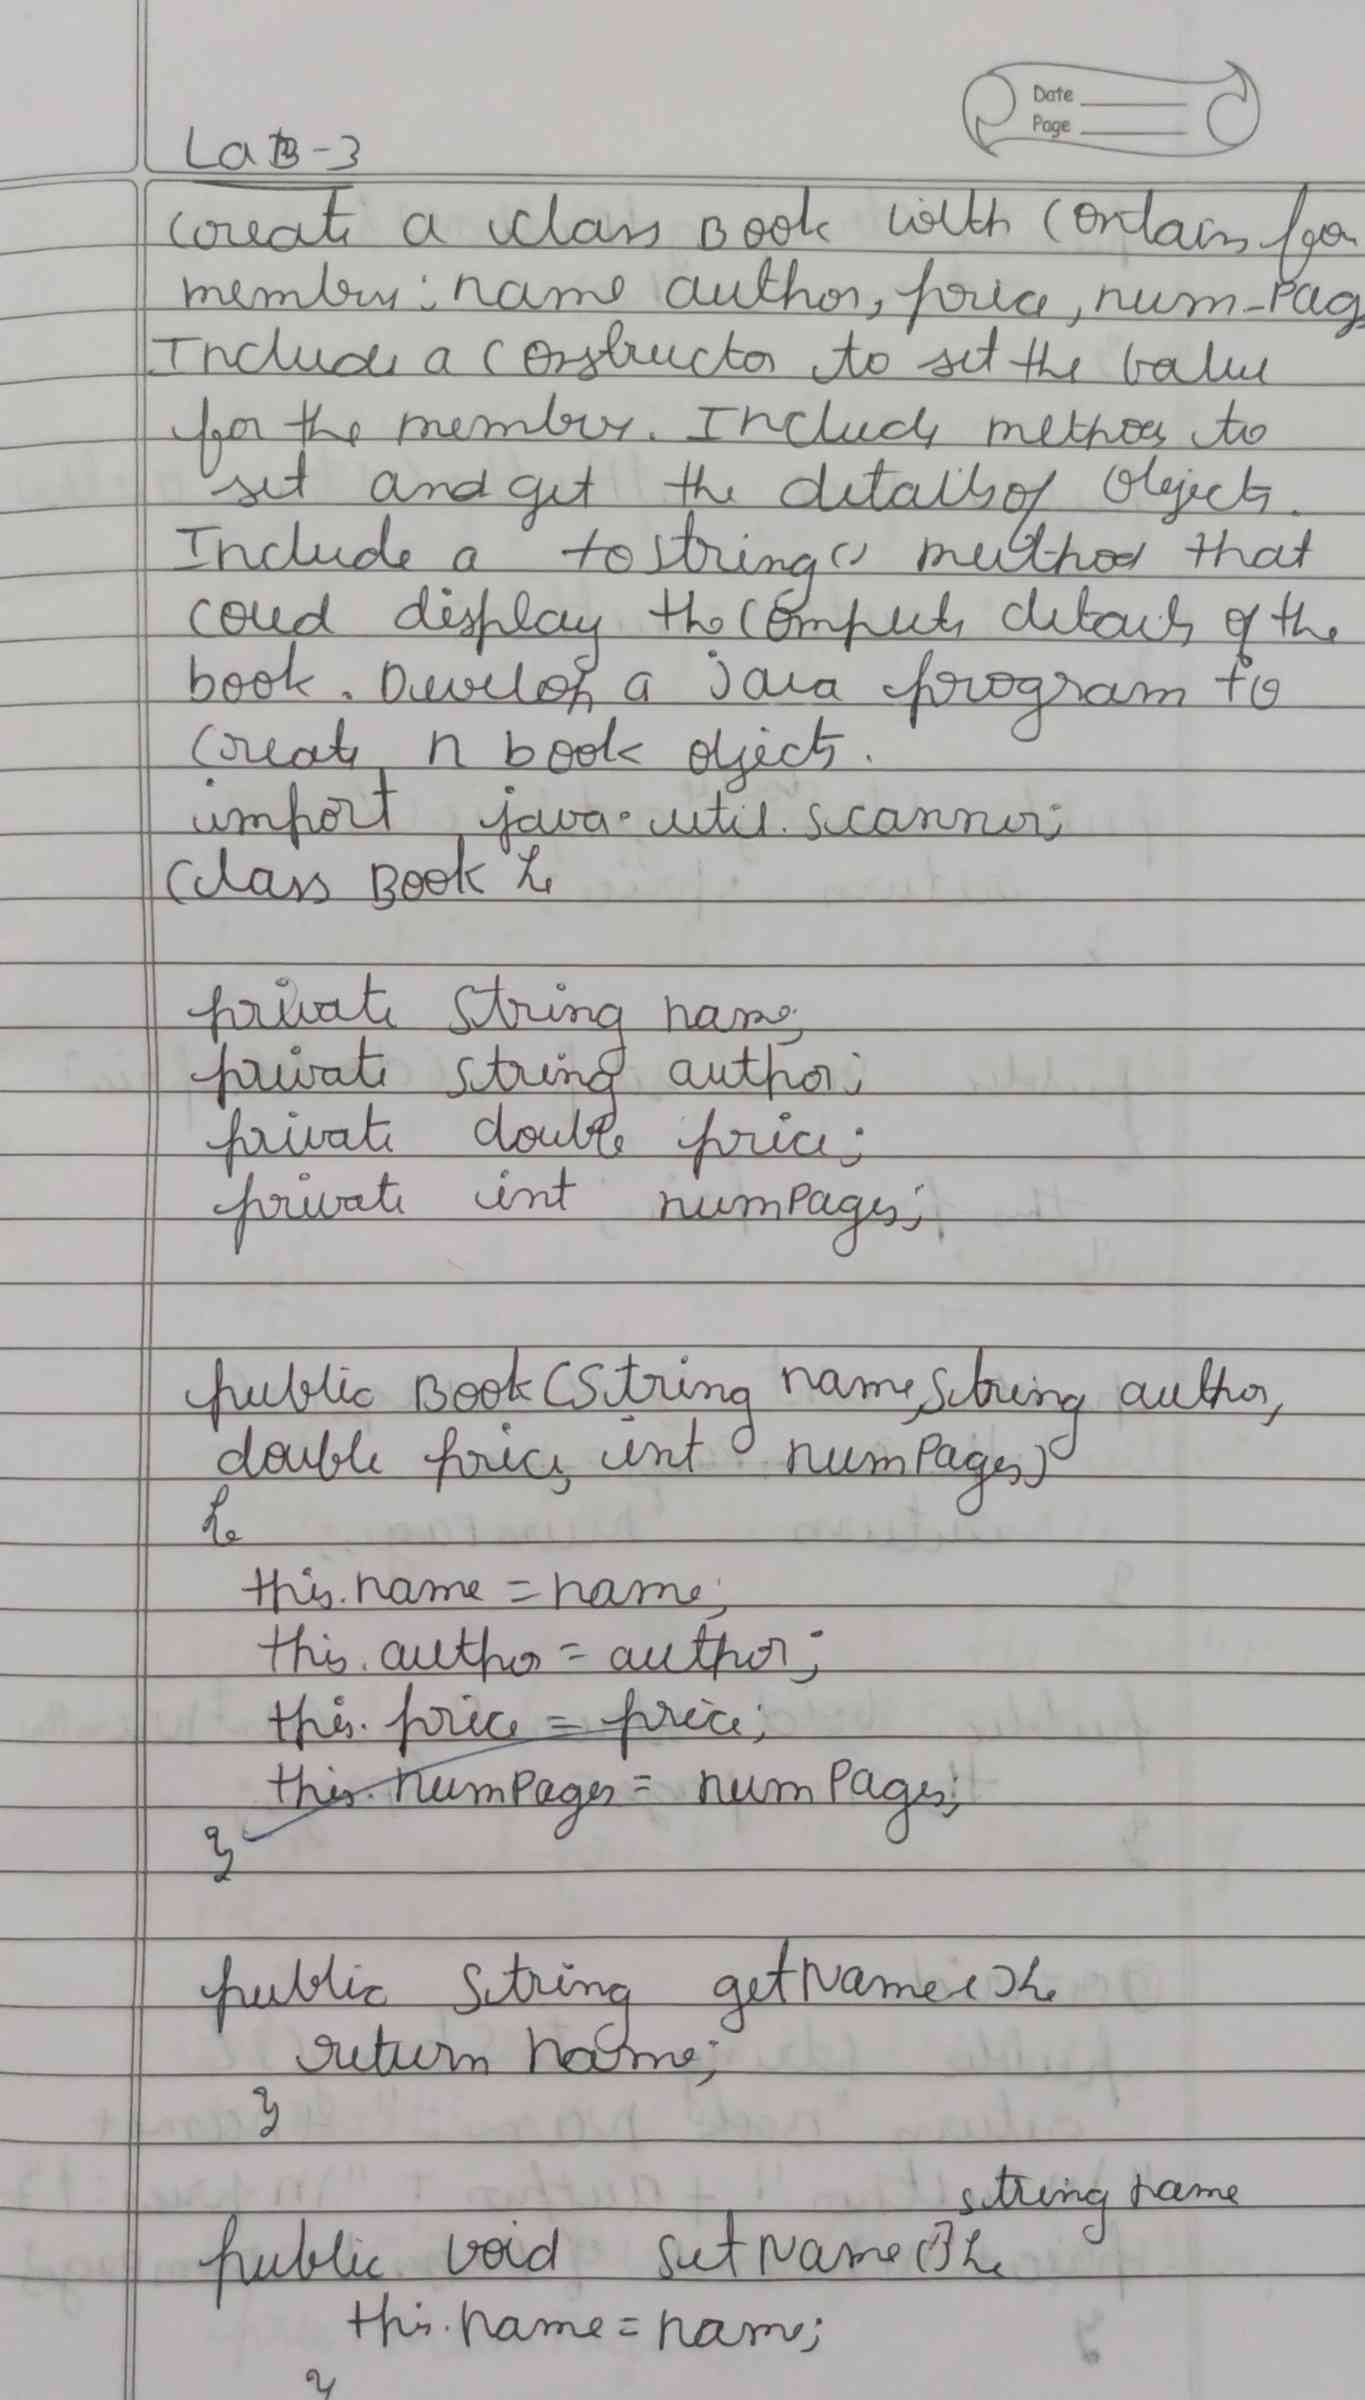 Date
Page
LaB-3
Create a class Book with contain four
members: name author, price, num-Pag
Include a constructor to set the value
for the members. Include methods to
set and get the details of objects.
Include a toString() method that
coud display the complete details of the
book. Develop a java program to
create n book objects.
import java.util.scanner;
class Book {
private String name;
private string author;
private double price;
private int numPages;
public Book(String name, String author,
double price, int numPages)
{
this.name = name;
this.author = author;
this.price = price;
this.numPages = numPages;
}
public String getName() {
return name;
}
string name
public void setName() {
this.name = name;
}